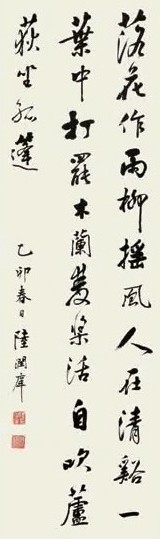 落花作雨柳摇風人在清谿一
葉中打罷木蘭雙槳活自吹蘆
荻坐孤蓬
乙卯春日陸潤庠